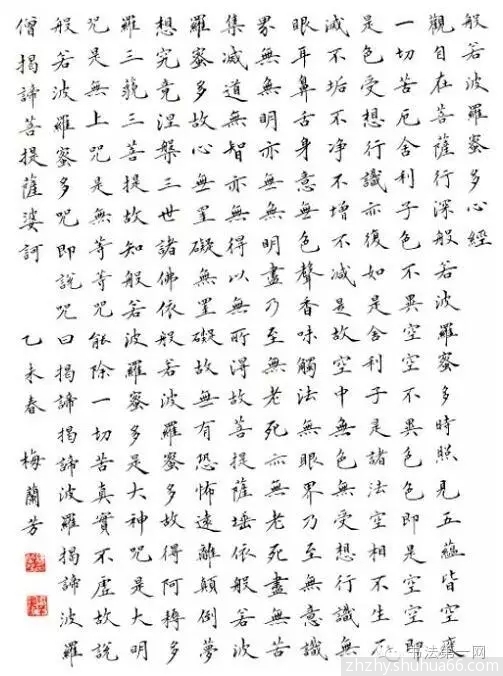 般若波羅蜜多心經
觀自在菩薩行深般若波羅蜜多時照見五蘊皆空度
一切苦厄舍利子色不異空空不異色色即是空空即
是色受想行識亦復如是舍利子是諸法空相不生不
滅不垢不净不增不减是故空中無色無受想行識無
眼耳鼻舌身意無色聲香味觸法無眼界乃至無意識
界無無明亦無無明盡乃至無老死亦無老死盡無苦
集滅道無智亦無得以無所得故菩提薩埵依般若波
羅蜜多故心無罣礙無罣礙故無有恐怖遠離顛倒夢
想究竟涅槃三世諸佛依般若波羅蜜多故得阿耨多
羅三藐三菩提故知般若波羅蜜多是大神咒是大明
咒是無上咒是無等等咒能除一切苦真實不虛故說
般若波羅蜜多咒即說咒曰揭諦揭諦波羅揭諦波羅
僧揭諦菩提薩婆訶 乙未春 梅蘭芳
书法第一网
zhzhy.shuhua66.com